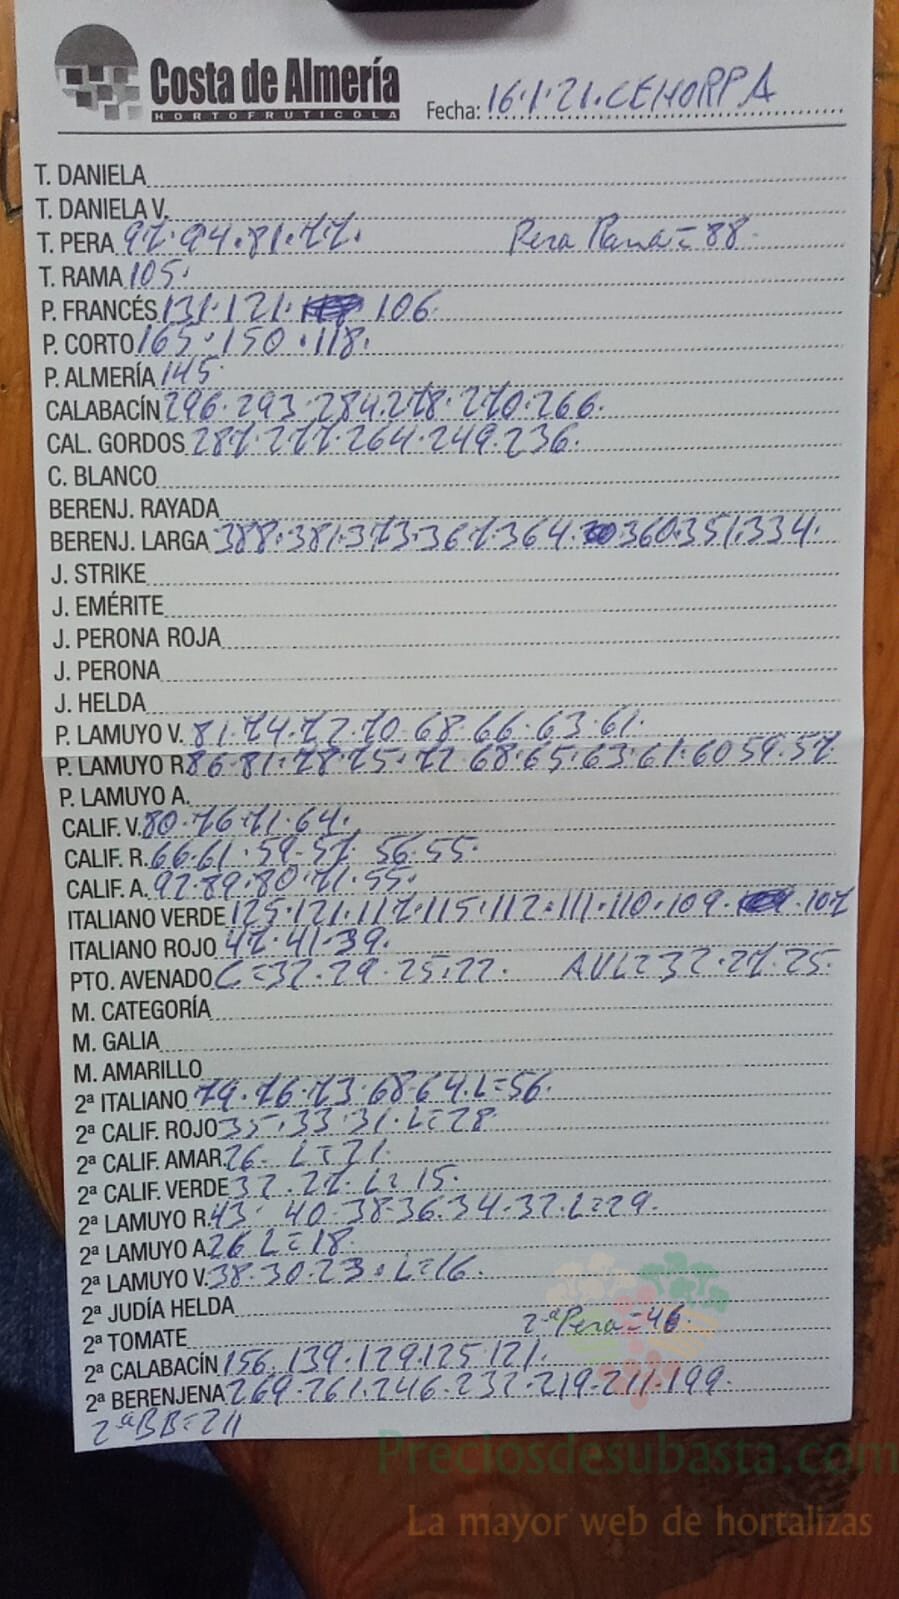 Costa de Almería
HORTOFRUTICOLA
Fecha: 16.1.21.CEHORPA
T. DANIELA
T. DANIELA V.
T. PERA 97.94.81.77. Pera Rama=88
T. RAMA 105.
P. FRANCÉS 131.121. 106
P. CORTO 165.150.118.
P. ALMERÍA 145
CALABACÍN 296.293.284.278.270.266.
CAL. GORDOS 287.277.264.249.236.
C. BLANCO
BERENJ. RAYADA
BERENJ. LARGA 388.381.373.367.364. 360.351.334.
J. STRIKE
J. EMÉRITE
J. PERONA ROJA
J. PERONA
J. HELDA
P. LAMUYO V. 81.74.72.70.68.66.63.61.
P. LAMUYO R. 86.81.78.75.72.68.65.63.61.60.59.57
P. LAMUYO A.
CALIF. V. 80.76.71.64.
CALIF. R. 66.61.59.57.56.55.
CALIF. A. 92.89.80.71.55.
ITALIANO VERDE 125.121.117.115.112.111.110.109. .107
ITALIANO ROJO 47.41.39.
PTO. AVENADO C=32.29.25.22. AVL=32.27.25.
M. CATEGORÍA
M. GALIA
M. AMARILLO
2ª ITALIANO 79.76.73.68.64.L=56.
2ª CALIF. ROJO 35.33.31.L=28
2ª CALIF. AMAR. 26. L=21.
2ª CALIF. VERDE 32.27.L=15.
2ª LAMUYO R. 43.40.38.36.34.32.L=29.
2ª LAMUYO A. 26 L=18.
2ª LAMUYO V. 38.30.23.L=16.
2ª JUDÍA HELDA
2ª TOMATE 2ªPera=46.
2ª CALABACÍN 156.139.129.125.121.
2ª BERENJENA 269.261.246.232.219.211.199.
2ªBB=211
Preciosdesubasta.com
La mayor web de hortalizas